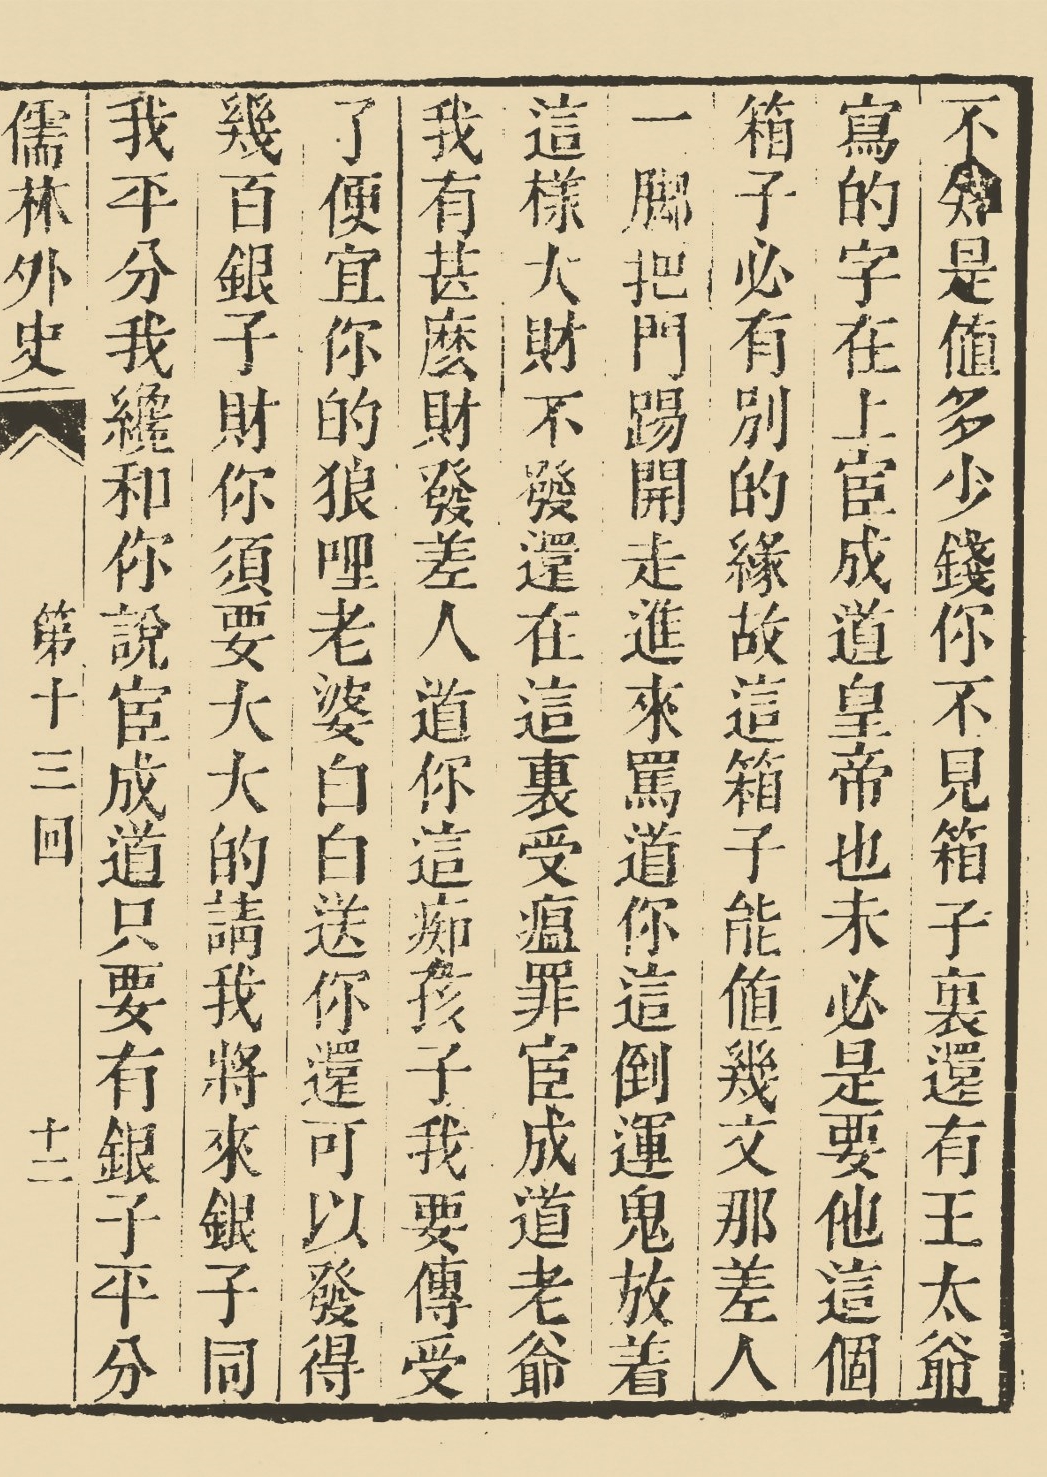 不知是値多少錢你不見箱子裏還有王太爺
寫的字在上宦成道皇帝也未必是要他這個
箱子必有別的緣故這箱子能値幾文那差人
一脚把門踢開走進來罵道你這倒運鬼放着
這樣大財不發還在這裏受瘟罪宦成道老爺
我有甚麽財發差人道你這痴孩子我要傳受
了便宜你的狼哩老婆白白送你還可以發得
幾百銀子財你須要大大的請我將來銀子同
我平分我纔和你說宦成道只要有銀子平分
儒林外史 第十三回 十二